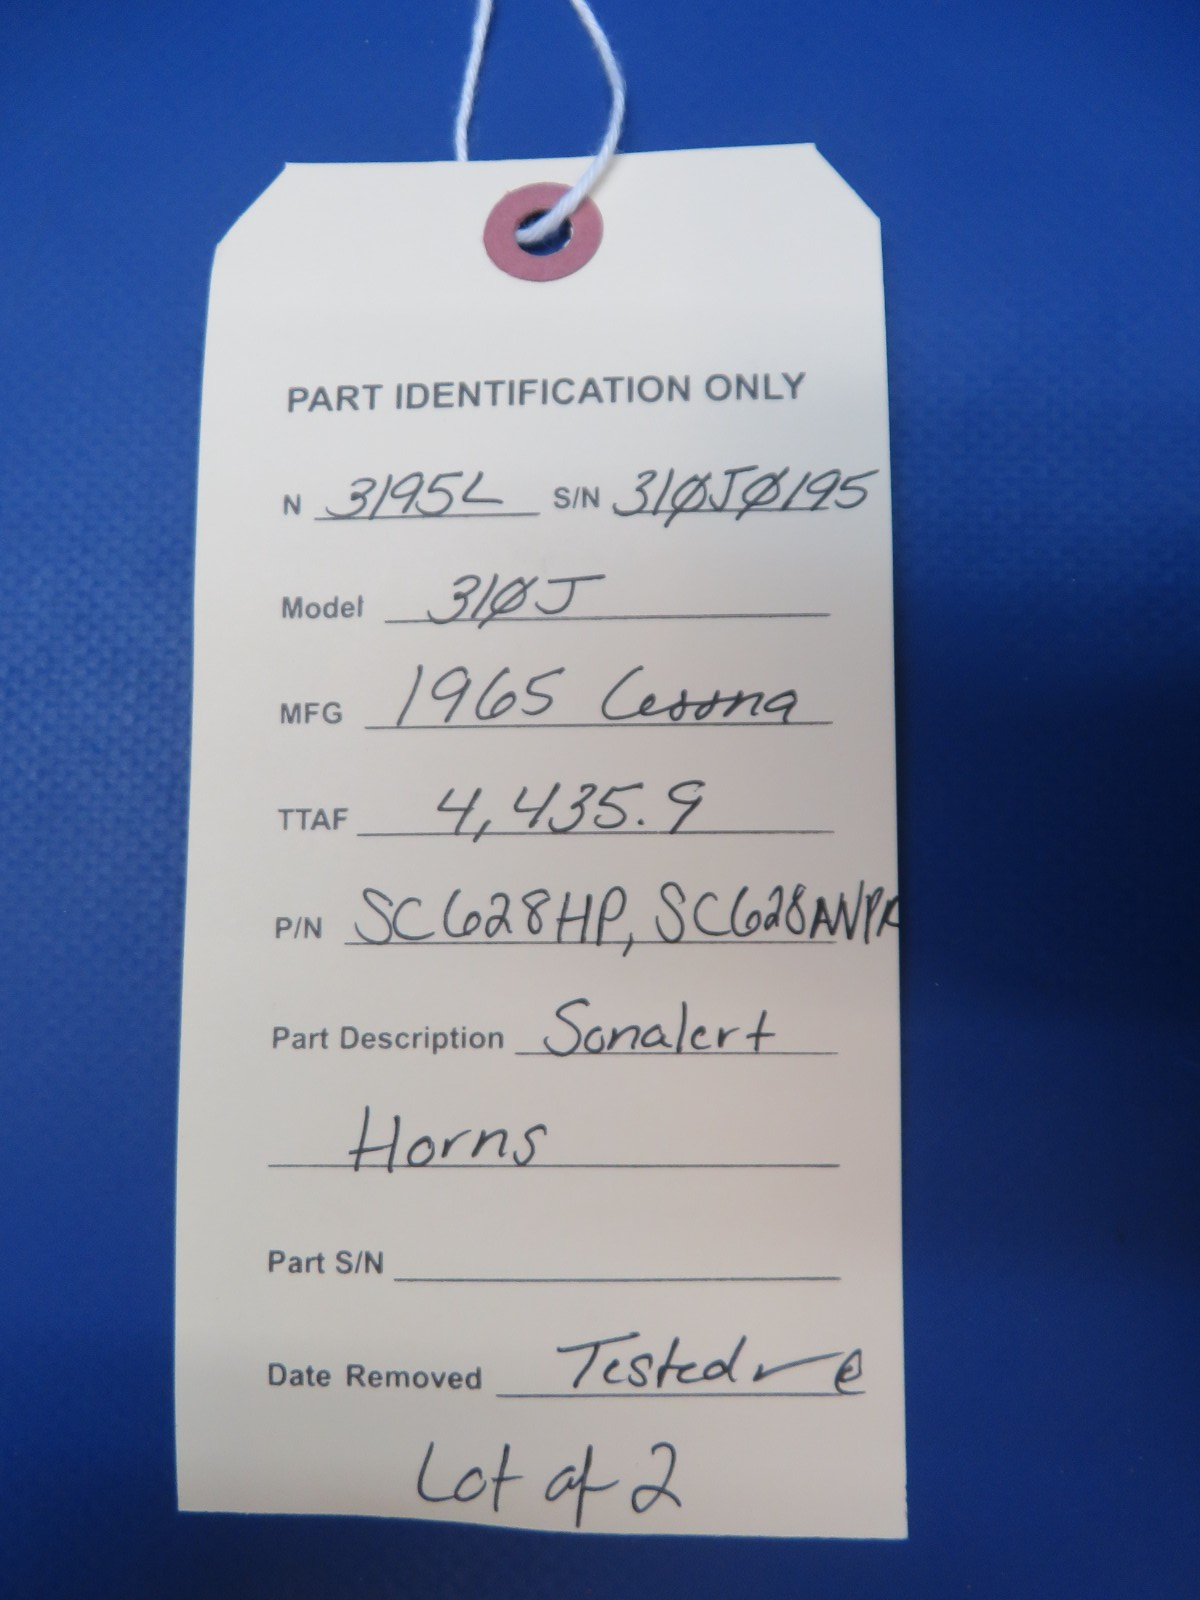 PART IDENTIFICATION ONLY
N 3195L S/N 310J0195
Model 310J
MFG 1965 Cessna
TTAF 4,435.9
P/N SC628HP, SC628ANPR
Part Description Sonalert
Horns
Part S/N
Date Removed Tested
Lot of 2